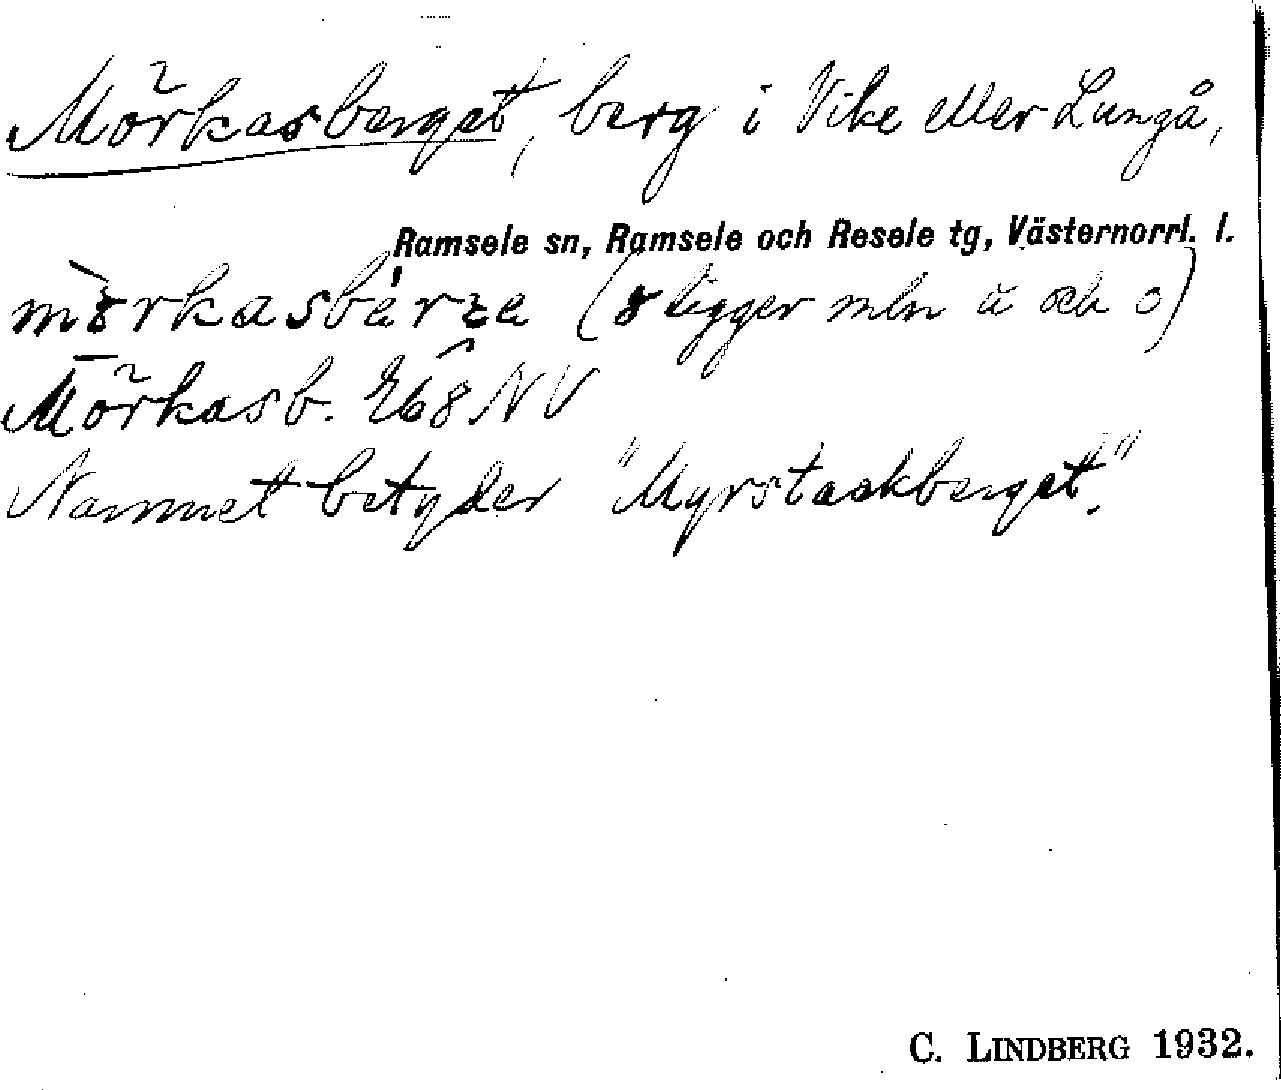 Mörkasberget, berg i Vike eller Lungå,
Ramsele sn, Ramsele och Resele tg, Västernorrl. l.
(8 ligger mln u och o)
Mörkasb. 268 NV
Namnet betyder "Myrstackberget".
C. LINDBERG 1932.